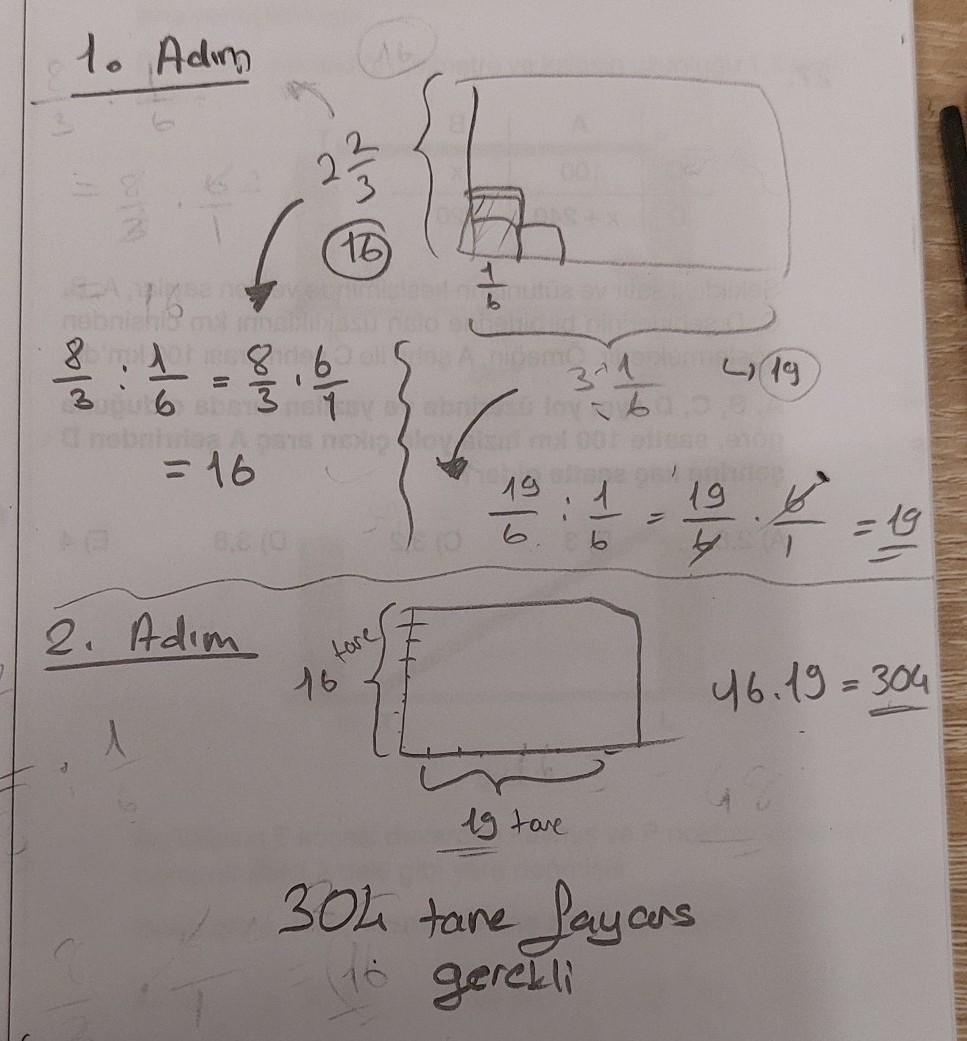 1. Adım
16
2 2/3
16
1/6
3 1/6 ↳ 19
8/3 : 1/6 = 8/3 . 6/1
= 16
19/6 : 1/6 = 19/6 . 6/1 = 19
2. Adım
16 tane
16.19 = 304
19 tane
304 tane fayans
gerekli
16